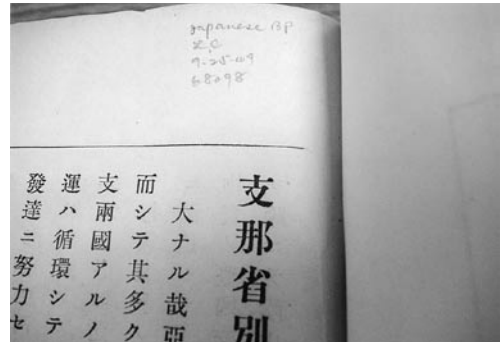 Japanese BP
L.C
9-25-09
68098
支那省別
大ナル哉亞
而シテ其多ク
支兩國アルノ
運ハ循環シテ
發達ニ努力セ